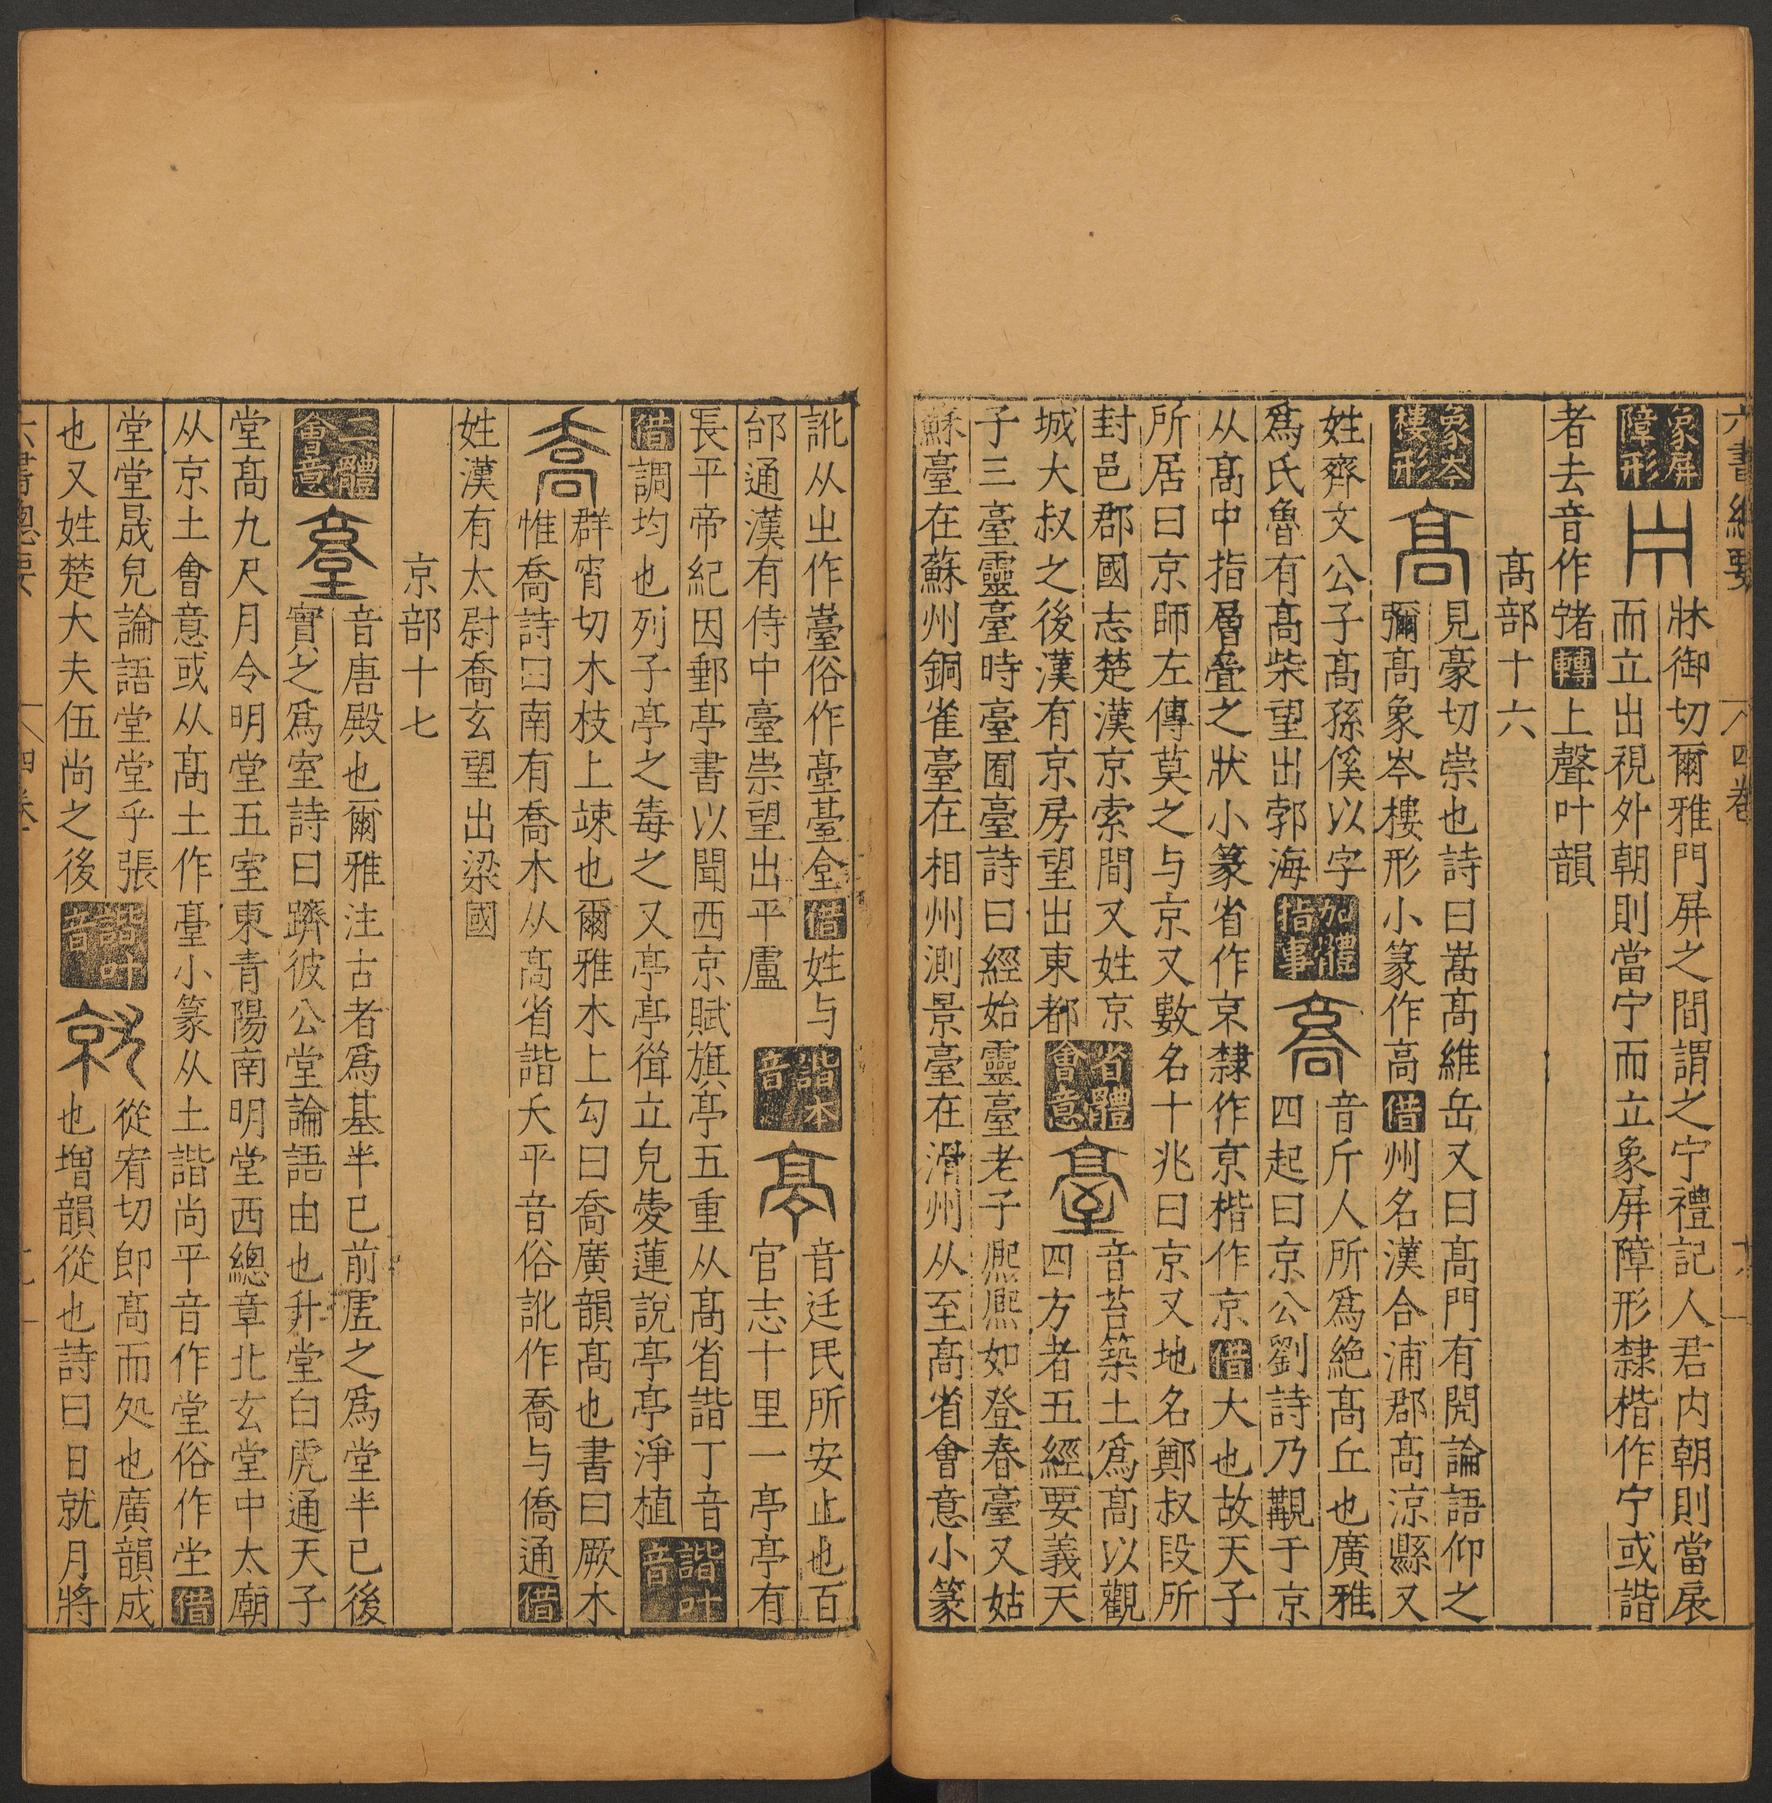 六書總要 四卷
象屏障形
牀御切爾雅門屏之間謂之宁禮記人君内朝則當扆
而立出視外朝則當宁而立象屏障形隸楷作宁或諧
者去音作 轉上聲叶韻
髙部十六
象岑樓形 高
見豪切崇也詩曰嵩髙維岳又曰髙門有閌論語仰之
彌髙象岑樓形小篆作高借州名漢合浦郡髙涼縣又
姓齊文公子髙孫傒以字
爲氏魯有髙柴望出郭海
加體指事
音斤人所爲絶髙丘也廣雅
四起曰京公劉詩乃覯于京
从髙中指層疊之狀小篆省作京隸作亰楷作京借大也故天子
所居曰京師左傳莫之与京又數名十兆曰京又地名鄭叔段所
封邑郡國志楚漢京索間又姓京
城大叔之後漢有京房望出東都
省體會意
音苔築土爲髙以觀
四方者五經要義天
子三臺靈臺時臺囿臺詩曰經始靈臺老子熈熈如登春臺又姑
蘇臺在蘇州銅雀臺在相州測景臺在滑州从至髙省會意小篆
訛从㞢作臺俗作仝借姓与
邰通漢有侍中臺崇望出平盧
諧本音 亭
音廷民所安止也百
官志十里一亭亭有
長平帝紀因郵亭書以聞西京賦旗亭五重从髙省諧丁音
借調均也列子亭之毒之又亭亭聳立皃愛蓮說亭亭淨植
諧叶音
喬
群宵切木枝上竦也爾雅木上勾曰喬廣韻髙也書曰厥木
惟喬詩曰南有喬木从髙省諧夭平音俗訛作喬与僑通借
姓漢有太尉喬玄望出梁國
京部十七
二體會意
音唐殿也爾雅注古者爲基半已前虛之爲堂半已後
實之爲室詩曰躋彼公堂論語由也升堂白虎通天子
堂髙九尺月令明堂五室東青陽南明堂西總章北玄堂中太廟
从京土會意或从髙土作小篆从土諧尚平音作堂俗作坣借
堂堂晟皃論語堂堂乎張
也又姓楚大夫伍尚之後
諧叶音 就
從宥切即髙而処也廣韻成
也增韻從也詩曰日就月將
六書總要 四卷